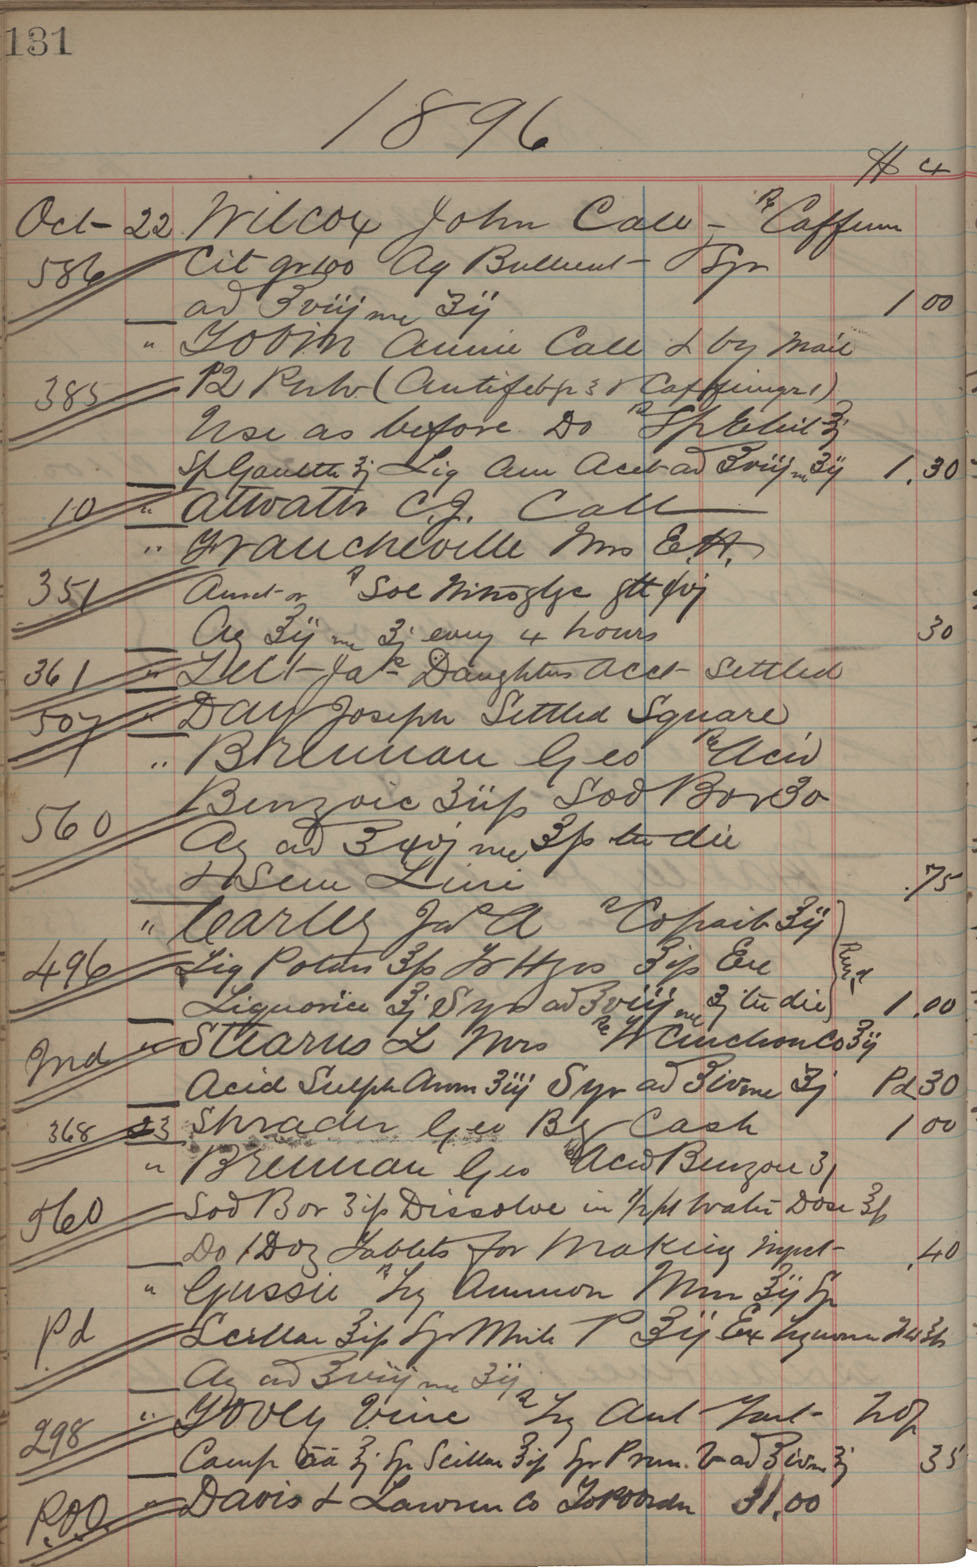 131
1896
$ c
Oct- 22 Wilcox John Call - ℞ Caffein
586 Cit gr 100 Aq Bullient Syr
ad ʒviij me ʒij 1 00
" Tobin Annie Call & by Mail
385 12 Pulv (Antifeb gr 3 & Caffein gr 1)
Use as before Do ℞ Sp Etheris ʒj
Sp Gaulth ʒj Liq Am Acet ad ʒviij m ʒij 1.30
10 " Atwater C.J. Call
" Francheville Mrs E.H.
351 ℞ Sol Nitroglyc gtt
Aq ʒij me ʒj every 4 hours 30
361 " Jas Daughters Acct Settled
507 " Day Joseph Settled Square
" Brennan Geo ℞ Acid
560 Benzoic ʒiiſs Sod Bor
Aq ad ʒxvj me ʒſs ter die
& Sem Lini .75
" Carley Jas A ℞ Copaib ʒij
496 Liq Potas ʒſs Tr Hyos ʒiſs Ext
Liquorice ʒj Syr ad ʒviij me ʒj ter die 1.00
Ind " Stearns L Mrs ℞ Tr Cinchon Co ʒij
Acid Sulph Arom ʒiij Syr ad ʒiv me ʒj Pd 30
368 23 Shrader Geo By Cash 1 00
" Brennan Geo ℞ Acid Benzoic
560 Sod Bor ʒiſs Dissolve in 1/2 pt Water Dose ʒſs
Do 1 Doz Tablets for Making Inject .40
" Gussie ℞ Ammon Mur ʒij Syr
Pd Scillae ʒiſs Ext
Aq ad ʒviij me ʒij
298 " Tovey Vine ℞ Ant Tart
Camp āā ʒj Syr Scillae ʒiſs Syr Prun. V ad ʒiv m ʒj 35
P.O.O. " Davis & Lawren Co 31.00